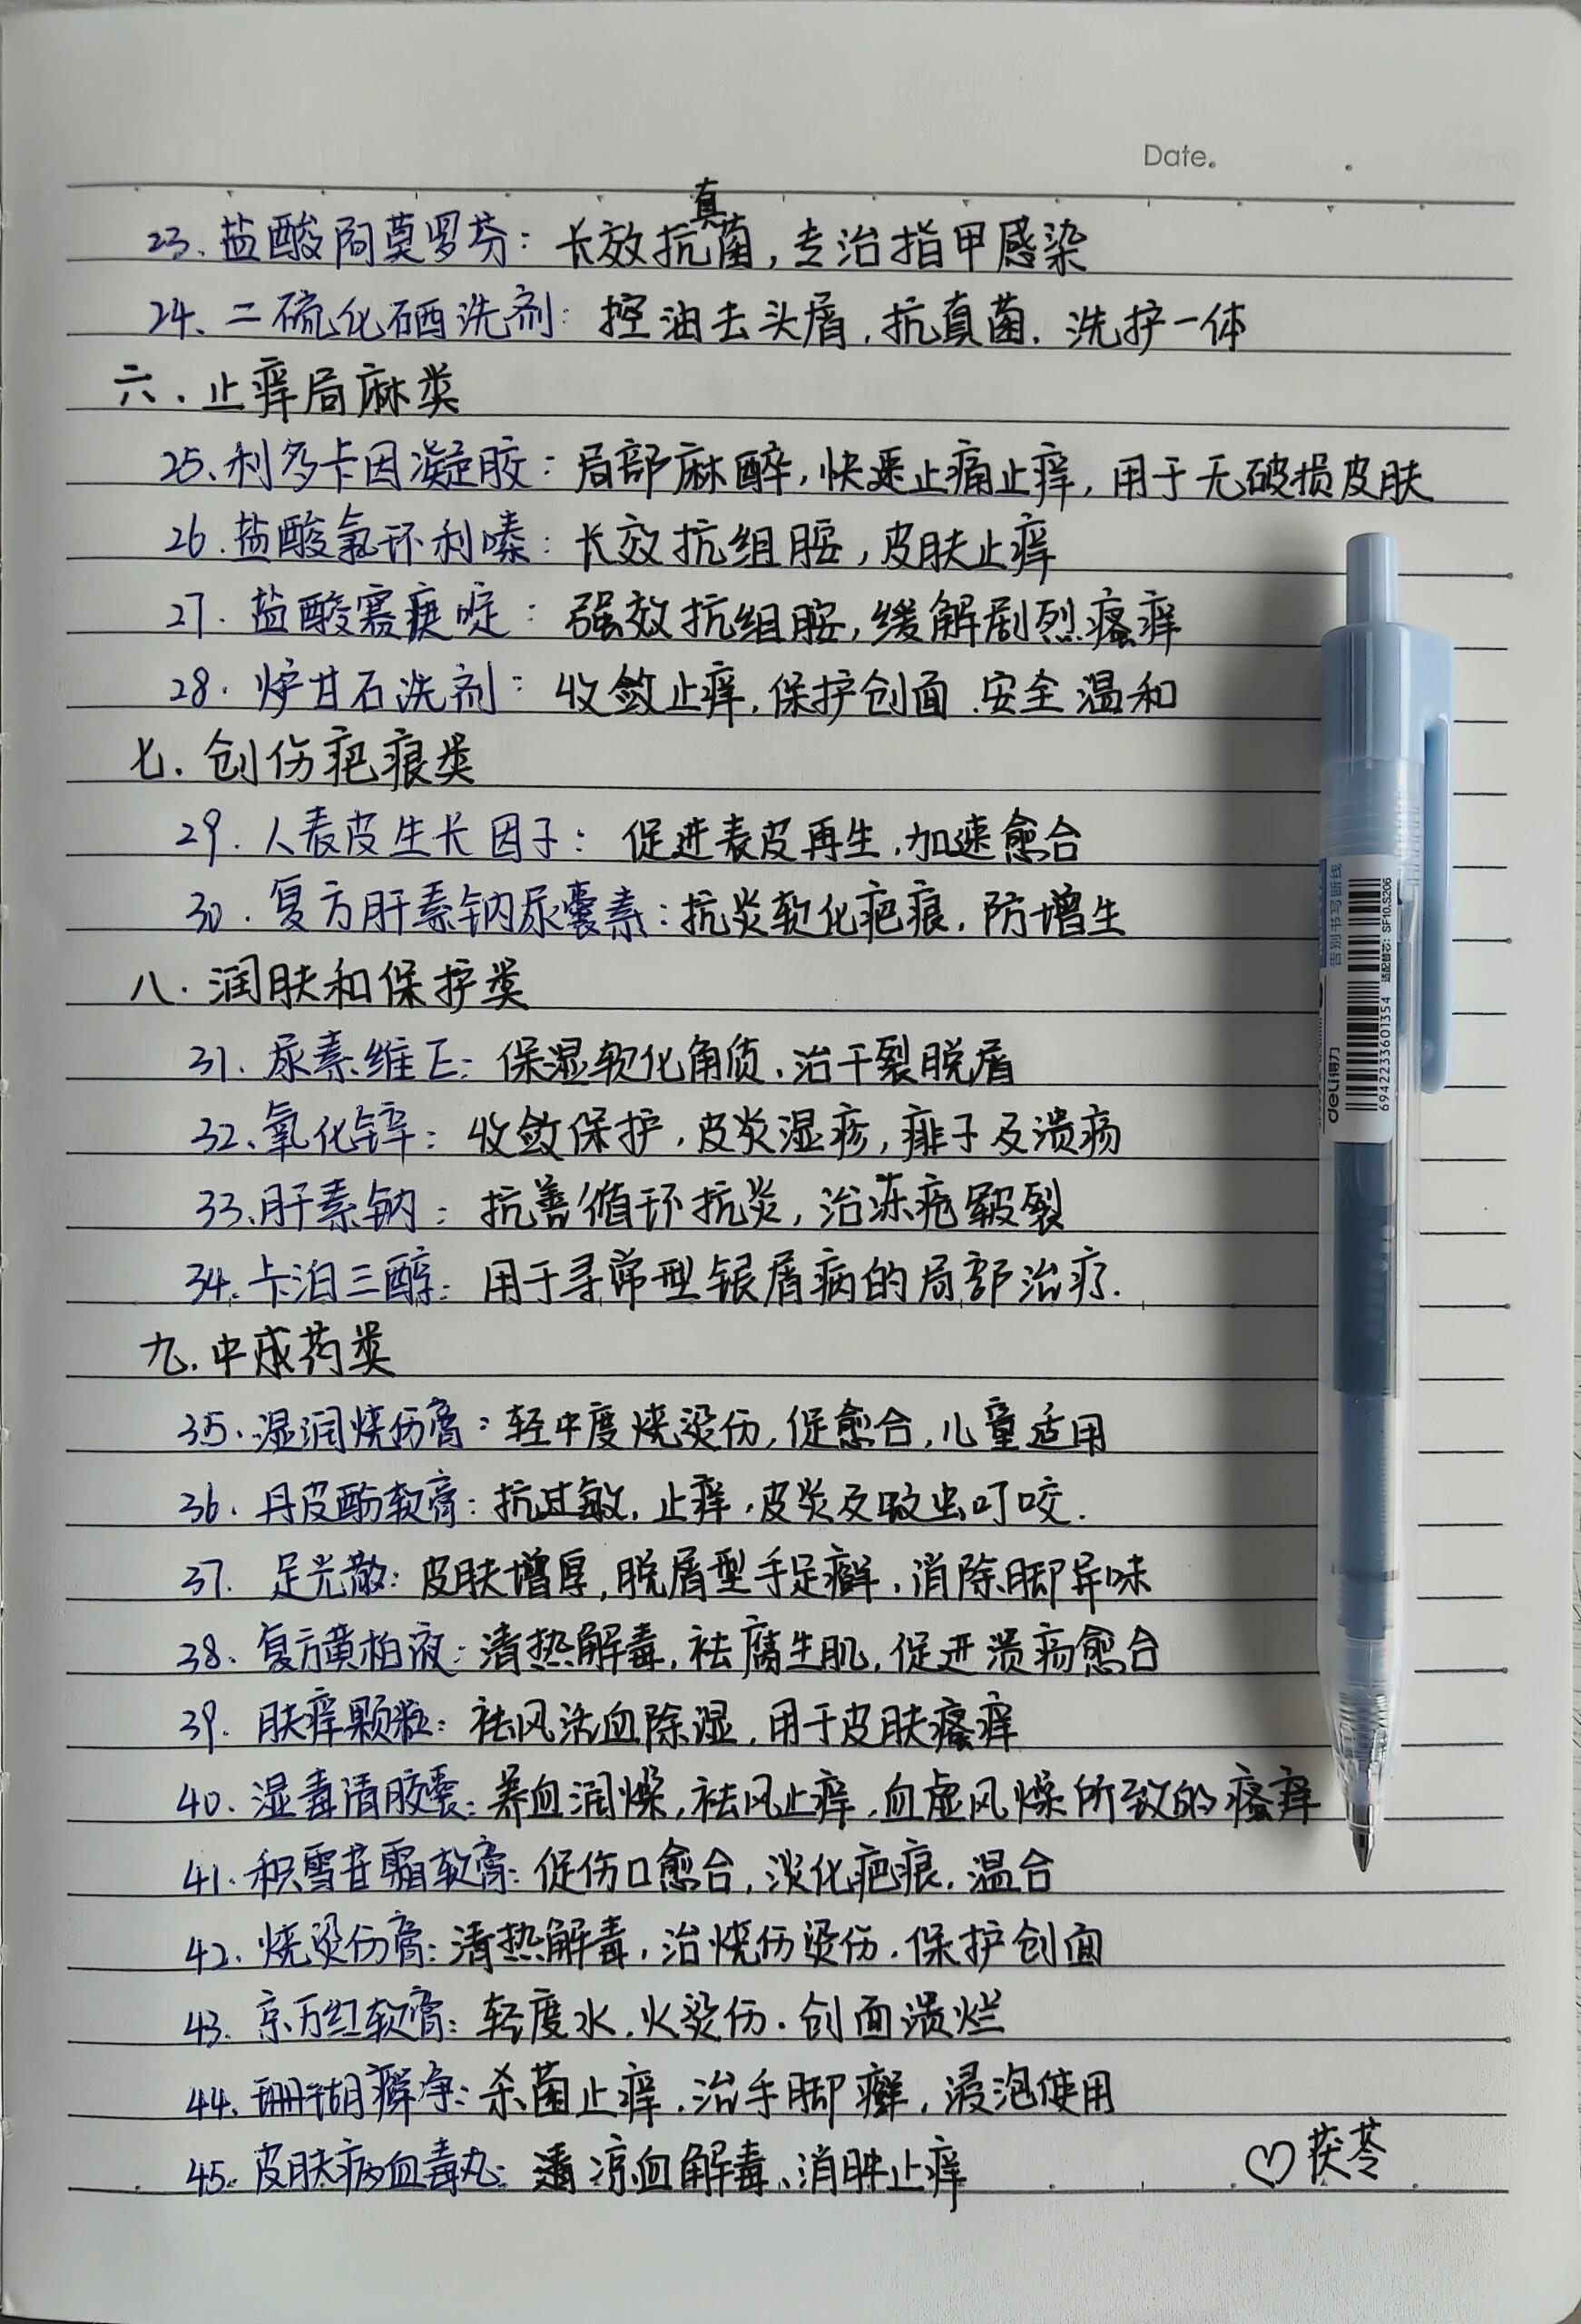 Date.
23. 盐酸阿莫罗芬：长效抗真菌，专治指甲感染
24. 二硫化硒洗剂：控油去头屑，抗真菌，洗护一体
六、止痒局麻类
25. 利多卡因凝胶：局部麻醉，快速止痛止痒，用于无破损皮肤
26. 盐酸氯环利嗪：长效抗组胺，皮肤止痒
27. 盐酸赛庚啶：强效抗组胺，缓解剧烈瘙痒
28. 炉甘石洗剂：收敛止痒，保护创面，安全温和
七、创伤疤痕类
29. 人表皮生长因子：促进表皮再生，加速愈合
30. 复方肝素钠尿囊素：抗炎软化疤痕，防增生
八、润肤和保护类
31. 尿素维E：保湿软化角质，治干裂脱屑
32. 氧化锌：收敛保护，皮炎湿疹，痱子及溃疡
33. 肝素钠：抗善循环抗炎，治冻疮皲裂
34. 卡泊三醇：用于寻常型银屑病的局部治疗.
九、中成药类
35. 湿润烧伤膏：轻中度烧烫伤，促愈合，儿童适用
36. 丹皮酚软膏：抗过敏，止痒，皮炎及蚊虫叮咬.
37. 足光散：皮肤增厚，脱屑型手足癣，消除脚异味
38. 复方黄柏液：清热解毒，祛腐生肌，促进溃疡愈合
39. 肤痒颗粒：祛风活血除湿，用于皮肤瘙痒
40. 湿毒清胶囊：养血润燥，祛风止痒，血虚风燥所致的瘙痒
41. 积雪苷霜软膏：促伤口愈合，淡化疤痕，温合
42. 烧烫伤膏：清热解毒，治烧伤烫伤，保护创面
43. 京万红软膏：轻度水、火烫伤，创面溃烂
44. 珊瑚癣净：杀菌止痒，治手脚癣，浸泡使用
45. 皮肤病血毒丸：清凉血解毒、消肿止痒
♡茯苓
告别书写断线
适配替芯：SF10,S206
deli得力
6942233601354